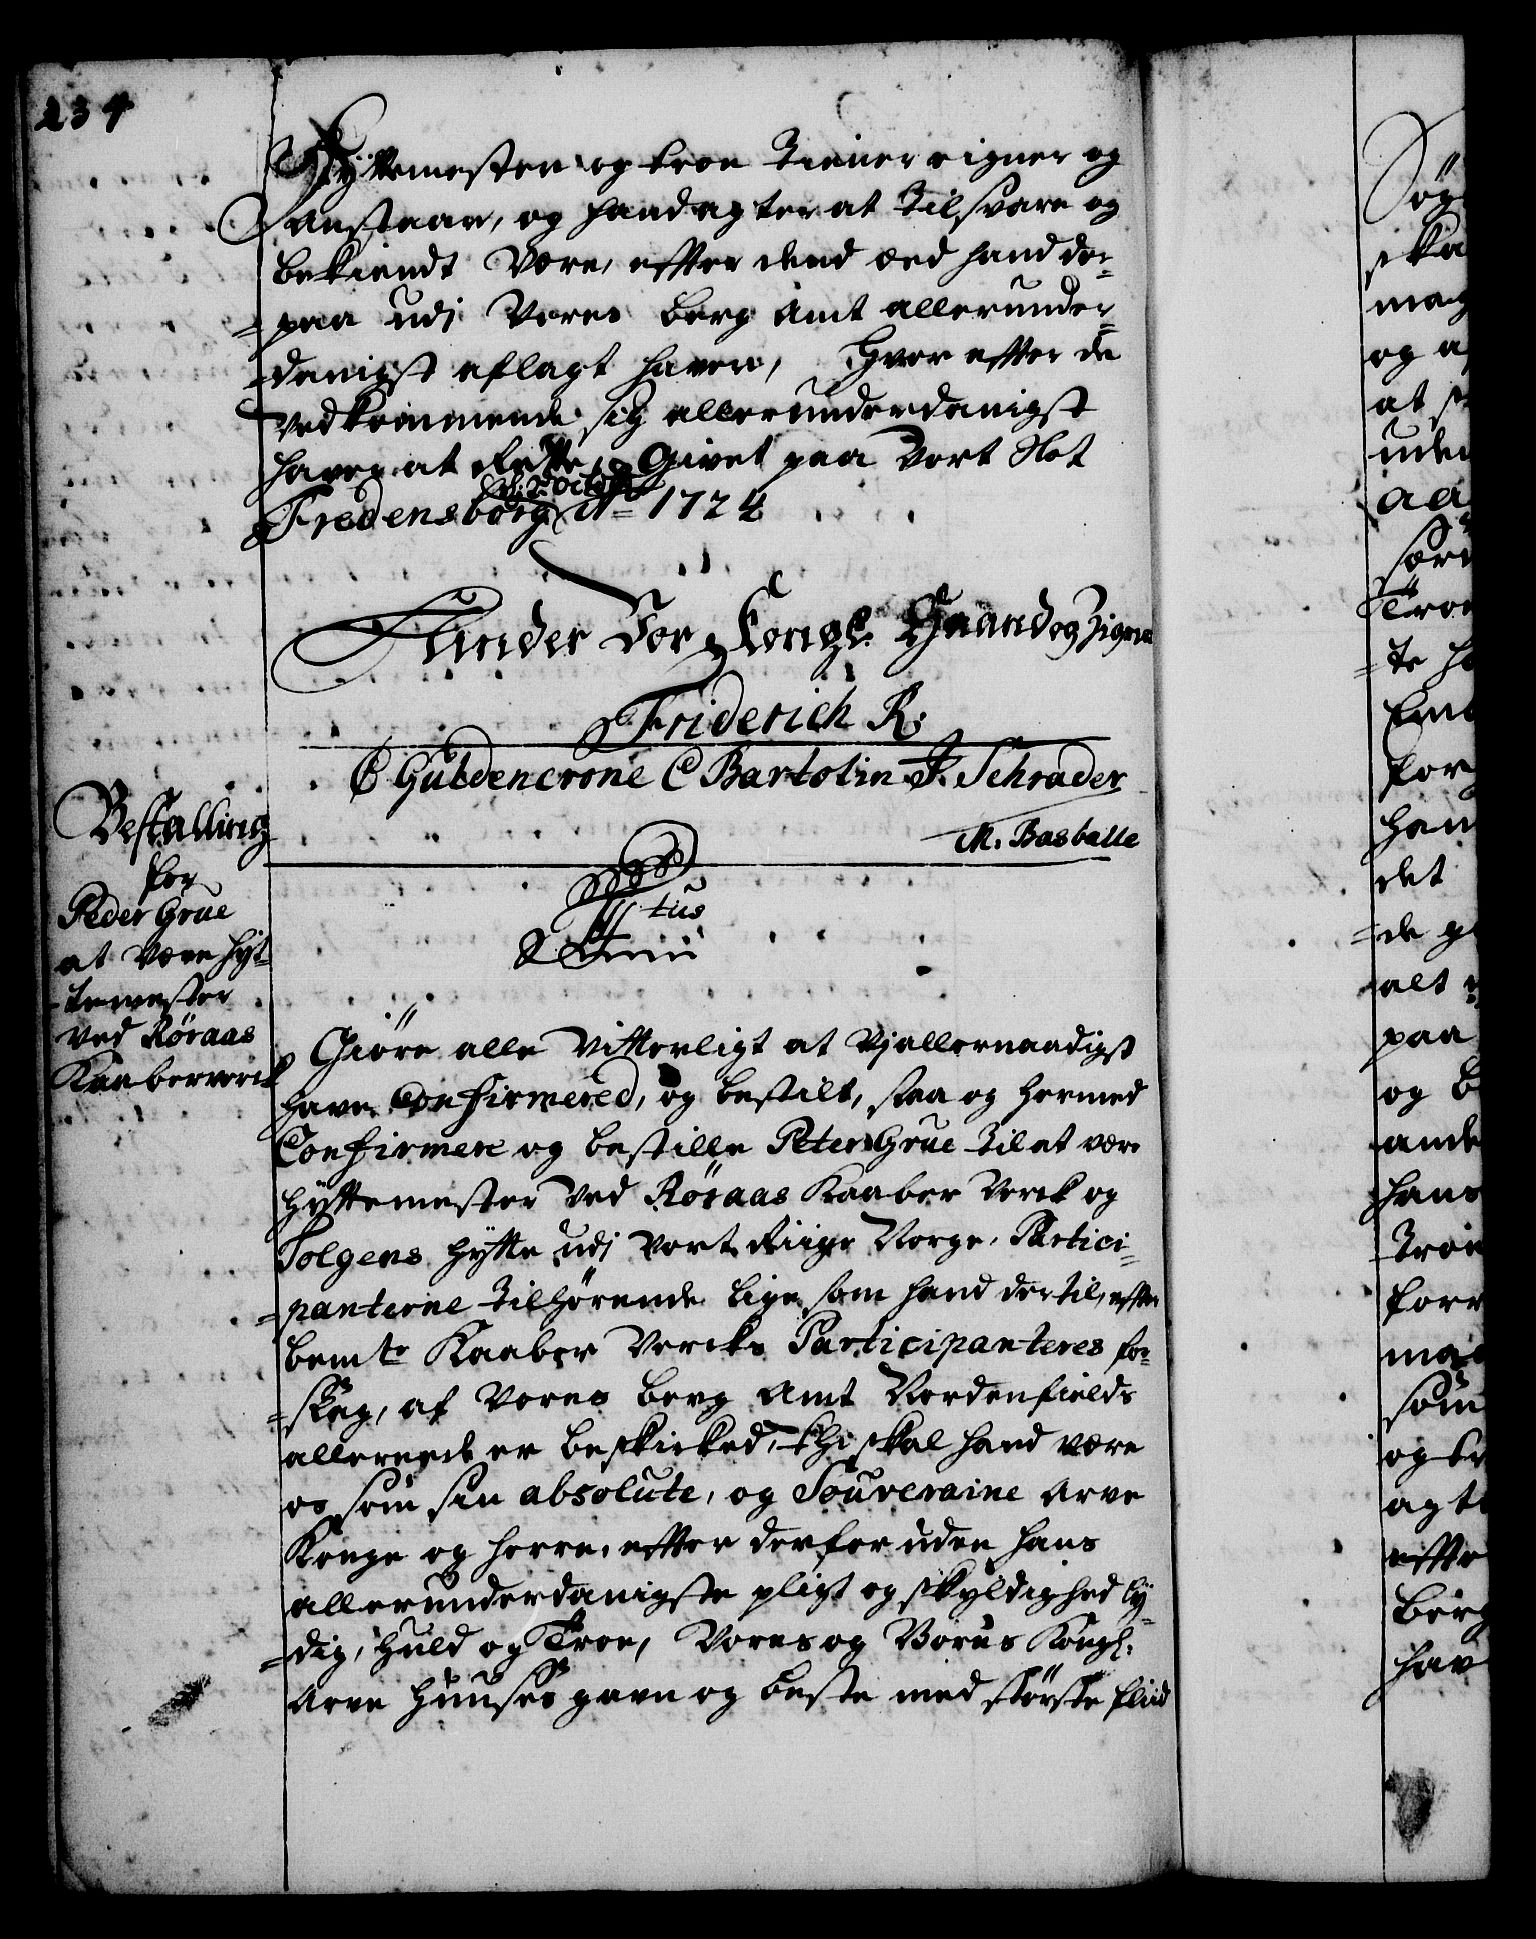 234
Hyttemester og troe Tienner eigner og
Anstaar, og haand agter at Tilsvare og
bekiendt Være, efter dend æed hand der
=paa udj Vores berg Amt allerunder=
=danigst aflagt haver, Hvor efter de
Vedkommende sig allerunderdanigst
haver at rette, Givet paa Vort Slot
Fredensborg d: 2. Octobr Ao 1724
Under Vor Kongl. Haand og Zignet
Friderich R:
C Guldencrone C Bartolin F. Schrader
M. Basballe
Bestalling
for
Peder Grue
at Være Hyt=
=temester
Ved Röraas
Kaaberverck
Giöre alle Vitterligt at Vj allernaadigst
have Confirmered, og bestilt, saa og hermed
Confirmere og bestille Peter Grue til at være
Hyttemester Ved Röraas Kaaber Verck og
Tolgens Hytte udj Vort Riige Norge, Partici=
=panterne tilhörende lige som hand dertil, efter
bemte Kaaber Vercks Participanteres for=
=slag, af Vores berg Amt Nordenfields
allerede er beskicked, thi skal hand være
os som sin absolute, og Souveraine Arve
Konge og Herre, efter derfor uden hans
allerunderdanigste pligt og skyldighed ly=
=dig, Huld og Troe, Vores og Vorus Kongl.
Arve Huuses gavn og beste med störste fliid